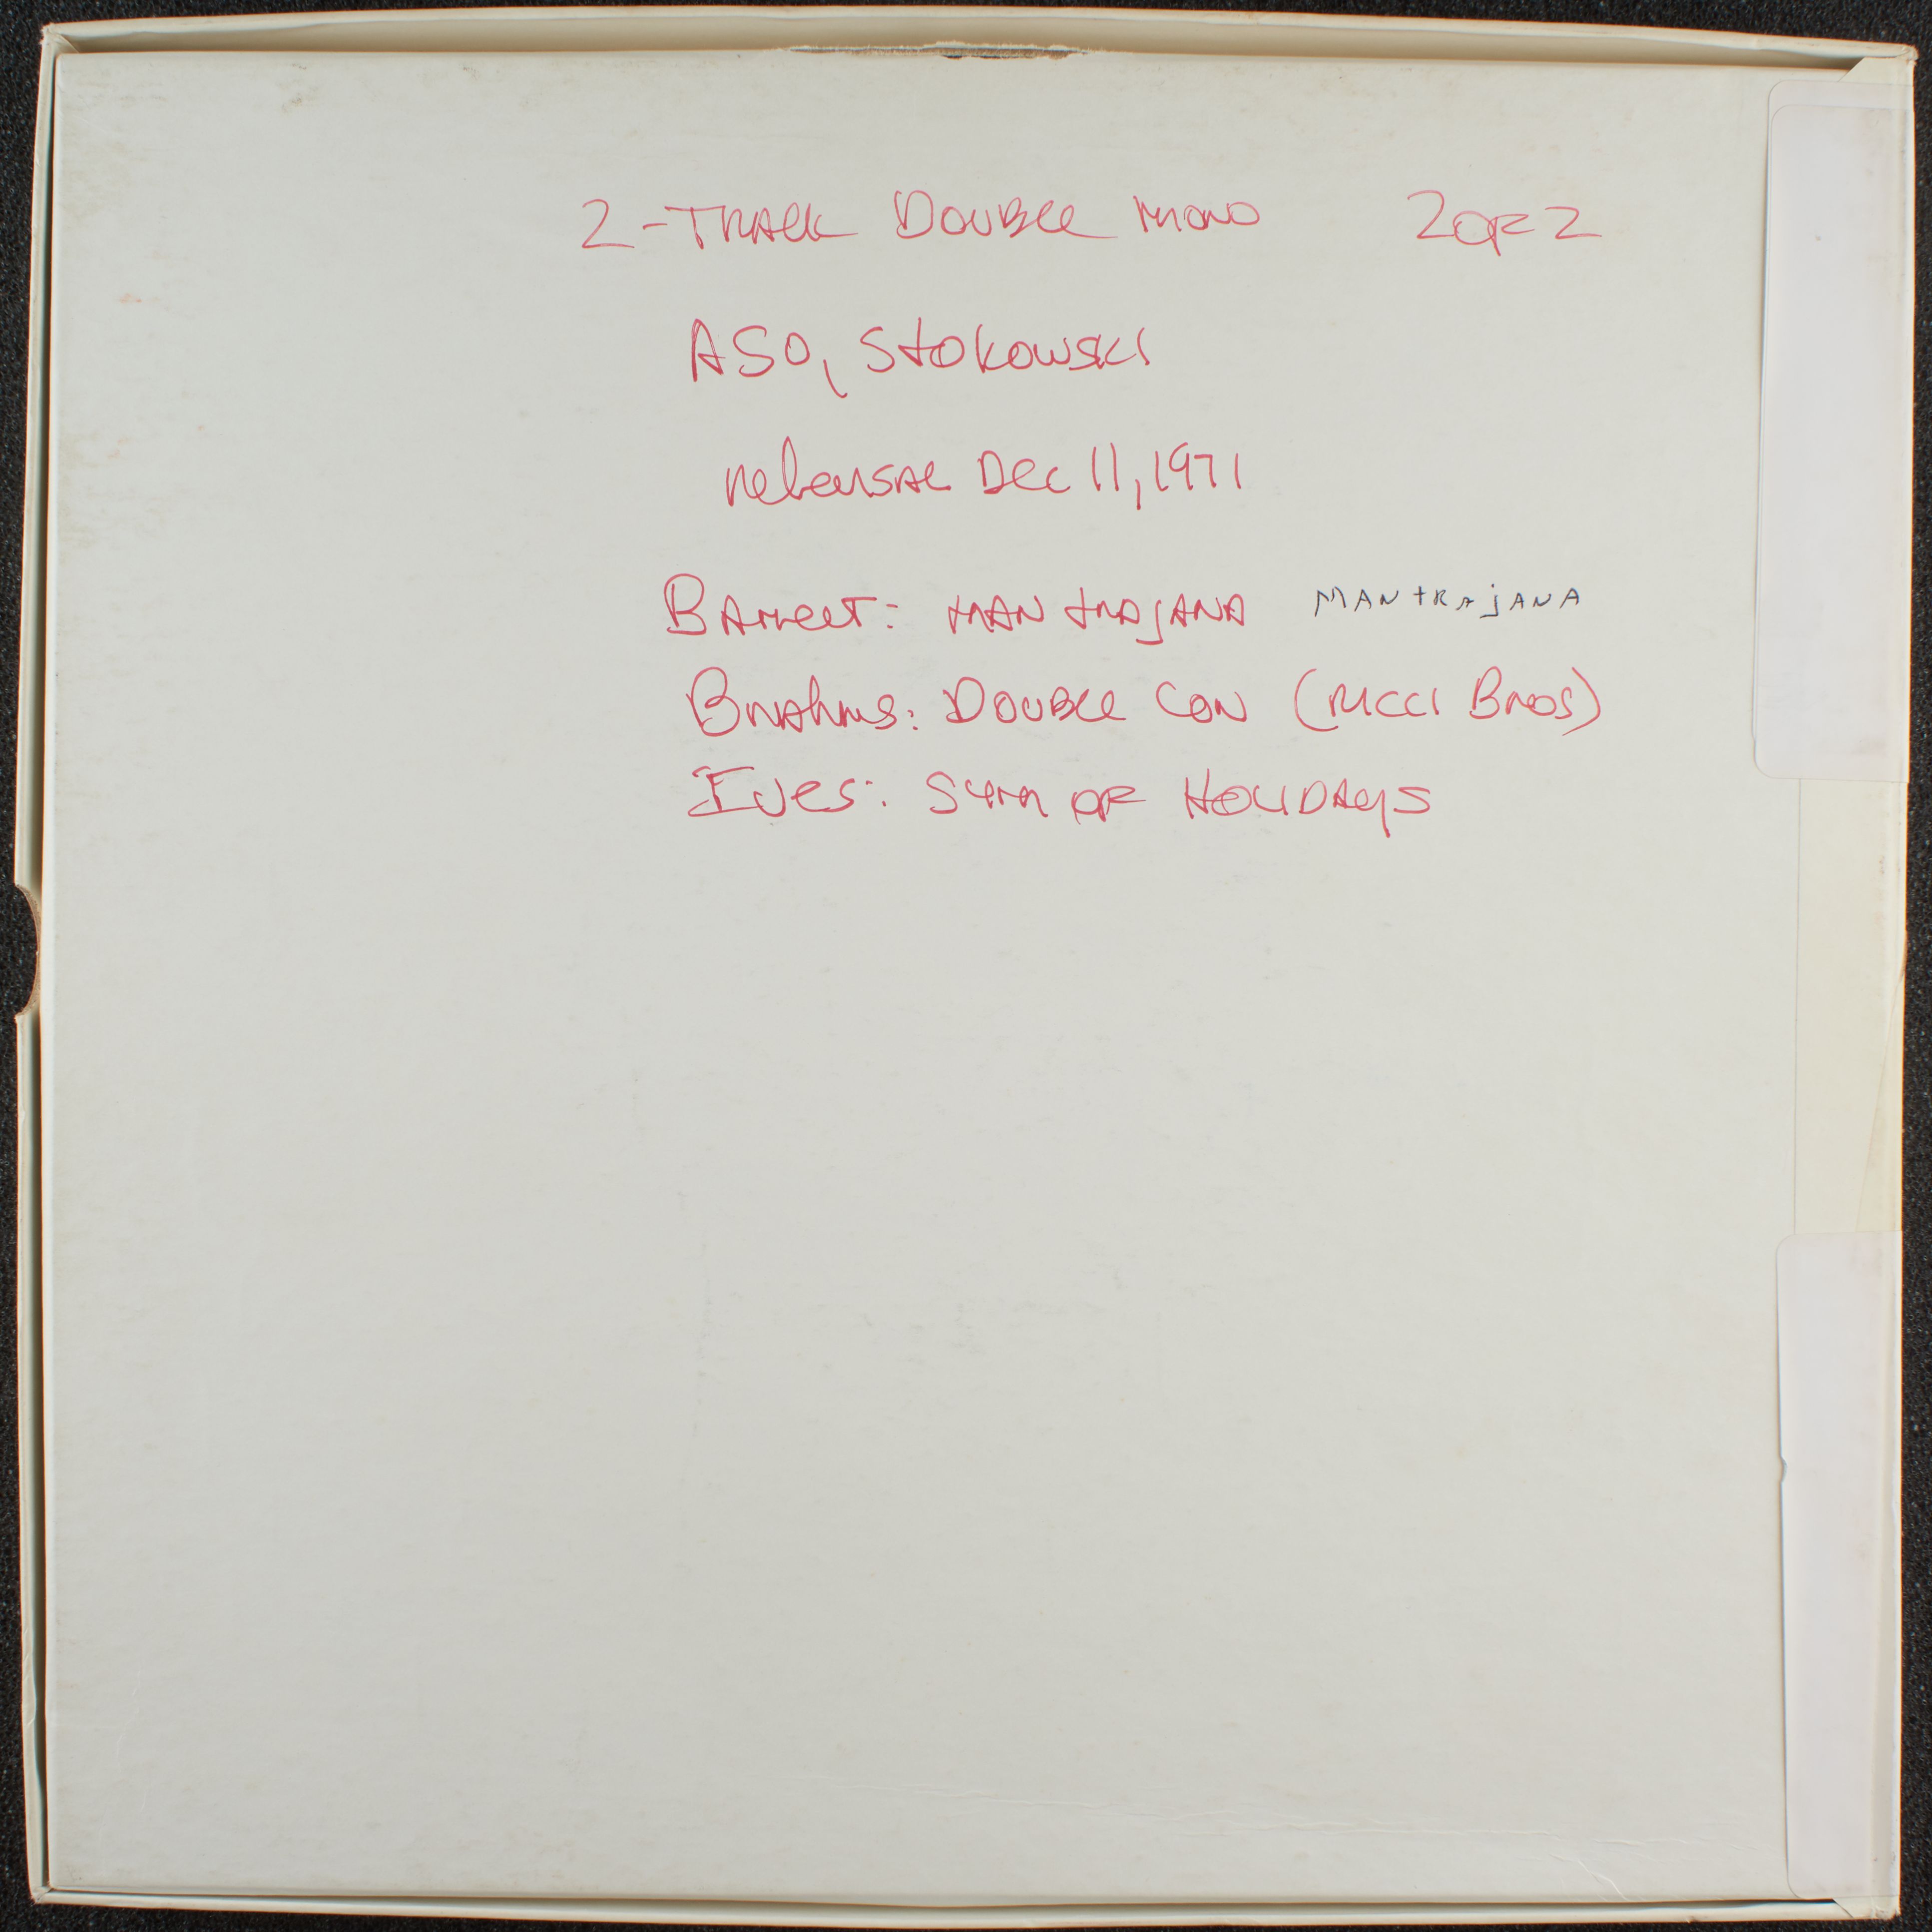 2-TRACK DOUBLE MONO 2 OF 2
ASO, Stokowski
rehearsal Dec 11, 1971
Barrett: MANtrajANA MANtRAjANA
Brahms: Double Con (Ricci Bros)
Ives: Sym OF HOLIDAYS